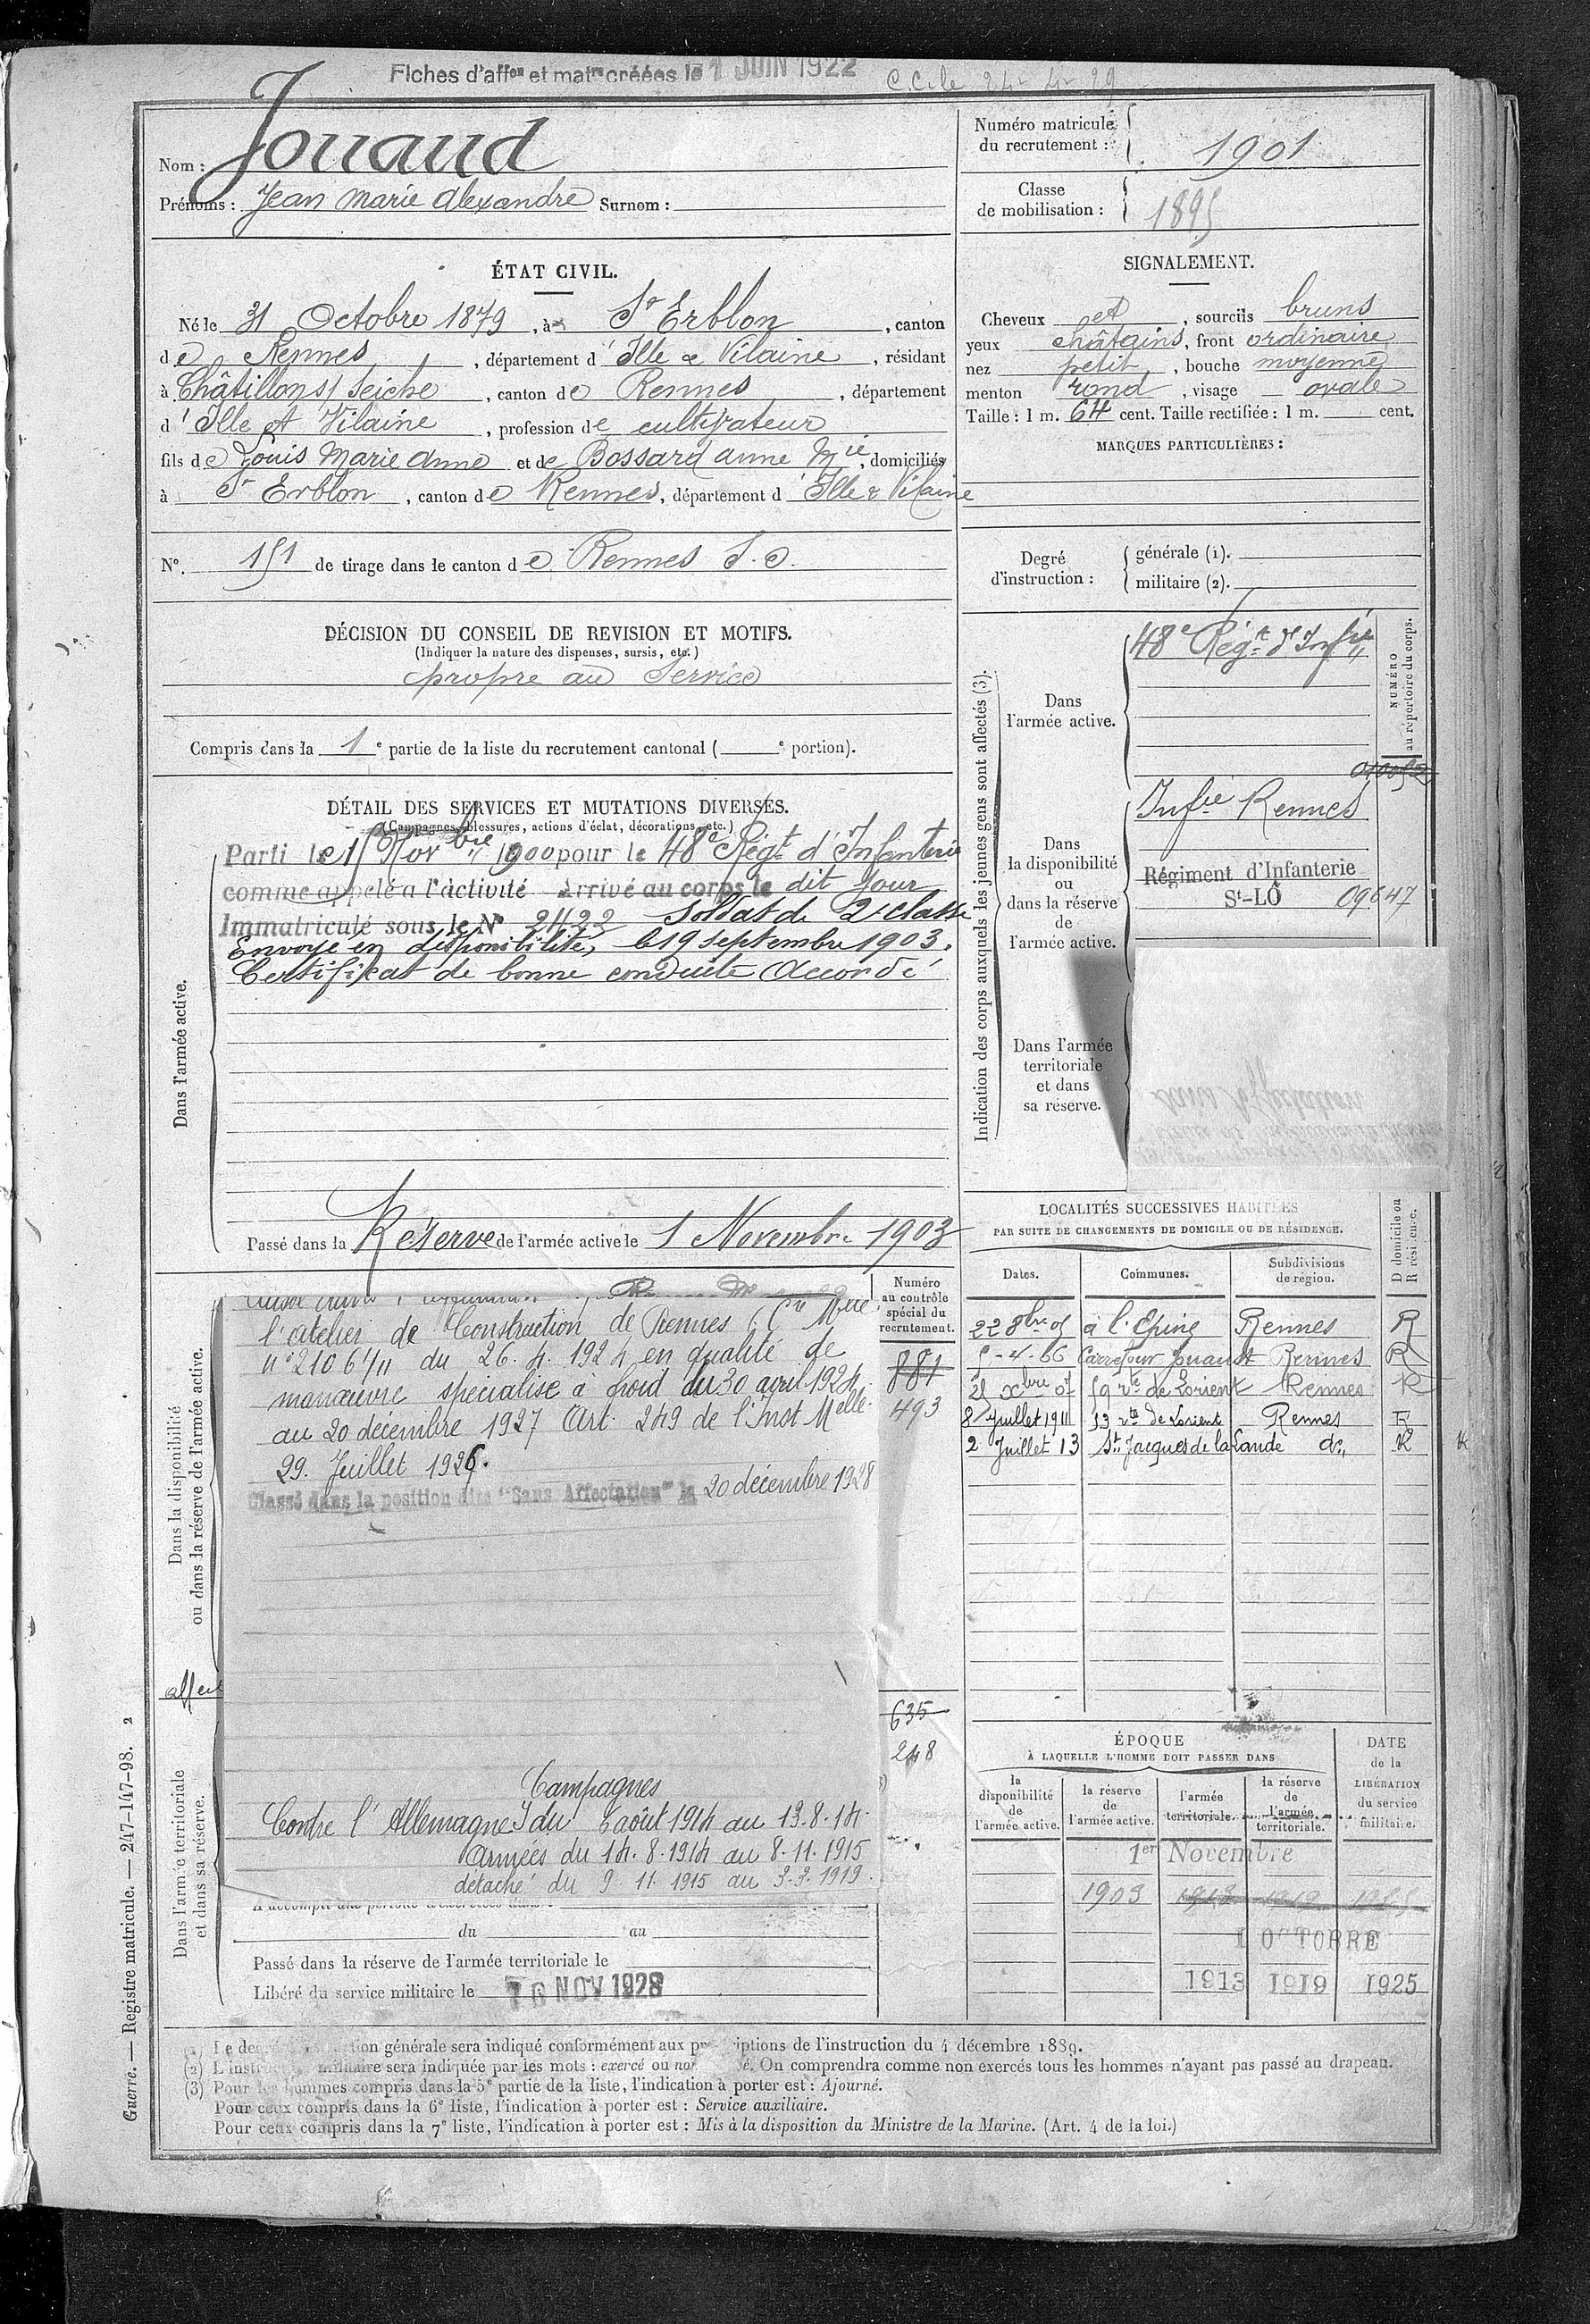 Fiches d'affon et matre créées le 1 JUIN 1922
C.C. le 24-4-29
Nom : Jouaud
Prénoms : Jean Marie Alexandre Surnom :
Numéro matricule du recrutement : 1901
Classe de mobilisation : 1895
ÉTAT CIVIL.
Né le 31 Octobre 1879, à St Erblon, canton
de Rennes, département d'Ille & Vilaine, résidant
à Châtillon s/ Seiche, canton de Rennes, département
d'Ille et Vilaine, profession de cultivateur
fils de Louis Marie Anne et de Bossard Anne Mie, domiciliés
à St Erblon, canton de Rennes, département d'Ille & Vilaine
N°. 151 de tirage dans le canton de Rennes S.O.
SIGNALEMENT.
Cheveux et, sourcils bruns
yeux châtains, front ordinaire
nez petit, bouche moyenne
menton rond, visage ovale
Taille : 1 m. 64 cent. Taille rectifiée : 1 m. cent.
MARQUES PARTICULIÈRES :
Degré d'instruction :
générale (1).
militaire (2).
DÉCISION DU CONSEIL DE REVISION ET MOTIFS.
(Indiquer la nature des dispenses, sursis, etc.)
propre au Service
Compris dans la 1e partie de la liste du recrutement cantonal ( e portion).
DÉTAIL DES SERVICES ET MUTATIONS DIVERSES.
(Campagnes, blessures, actions d'éclat, décorations, etc.)
Dans l'armée active.
Parti le 15 Novbre 1900 pour le 48e Régt d'Infanterie
comme appelé à l'activité Arrivé au corps le dit jour
Immatriculé sous le N° 2422 Soldat de 2e classe
Envoyé en disponibilité, le 19 septembre 1903.
Certificat de bonne conduite Accordé
Passé dans la Réserve de l'armée active le 1 Novembre 1903
Indication des corps auxquels les jeunes gens sont affectés (3).
NUMÉRO au répertoire du corps.
Dans l'armée active.
48e Régt d'Infie
Dans la disponibilité ou dans la réserve de l'armée active.
Infie Rennes
Régiment d'Infanterie
St-LÔ 09647
Dans l'armée territoriale et dans sa réserve.
sans affectation
Dans la disponibilité ou dans la réserve de l'armée active.
Numéro au contrôle spécial du recrutement.
l'atelier de Construction de Rennes (Cre Mlle
n° 21064/11 du 26. 4. 1924 en qualité de
manœuvre spécialisé à froid du 30 avril 1924
au 20 décembre 1927 Art. 249 de l'Inst Melle
29. Juillet 1926.
Classé dans la position dite "Sans Affectation" le 20 décembre 1928
881
493
Dans l'armée territoriale et dans sa réserve.
635
248
Campagnes
Contre l'Allemagne I du 6 août 1914 au 13-8-14
Armées du 14.8.1914 au 8.11.1915
détaché du 9 11 1915 au 3-3-1919.
du au
Passé dans la réserve de l'armée territoriale le
Libéré du service militaire le 10 NOV 1928
LOCALITÉS SUCCESSIVES HABITÉES
PAR SUITE DE CHANGEMENTS DE DOMICILE OU DE RÉSIDENCE.
Dates. Communes. Subdivisions de région. D domicile ou R résidence.
22 8bre 05 à l'Epine Rennes R
5-4-06 Carrefour Jouaust Rennes R
25 Xbre 07 59 rte de Lorient Rennes R
8 Juillet 1911 53 rte de Lorient Rennes R
2 Juillet 13 St Jacques de la Lande do R
ÉPOQUE
À LAQUELLE L'HOMME DOIT PASSER DANS
DATE de la LIBÉRATION du service militaire.
la disponibilité de l'armée active. la réserve de l'armée active. l'armée territoriale. la réserve de l'armée territoriale.
1er Novembre
1903 1913 1919 1925
1 OCTOBRE
1913 1919 1925
(1) Le degré d'instruction générale sera indiqué conformément aux prescriptions de l'instruction du 4 décembre 1889.
(2) L'instruction militaire sera indiquée par les mots : exercé ou non exercé. On comprendra comme non exercés tous les hommes n'ayant pas passé au drapeau.
(3) Pour les hommes compris dans la 5e partie de la liste, l'indication à porter est : Ajourné.
Pour ceux compris dans la 6e liste, l'indication à porter est : Service auxiliaire.
Pour ceux compris dans la 7e liste, l'indication à porter est : Mis à la disposition du Ministre de la Marine. (Art. 4 de la loi.)
Guerre. — Registre matricule. — 247-147-98. 2